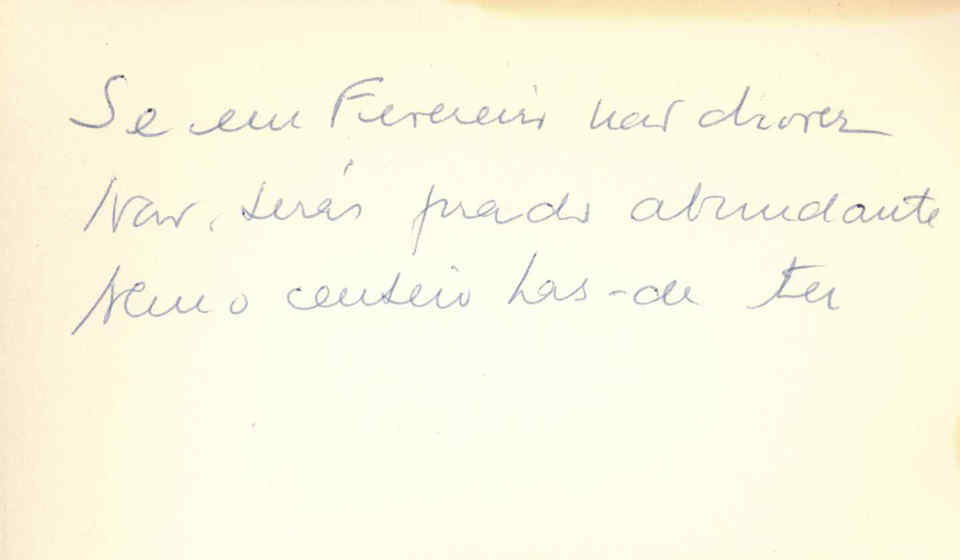 Se em Fevereiro não chover
Não, terás prado abundante
Nem o centeio has-de ter